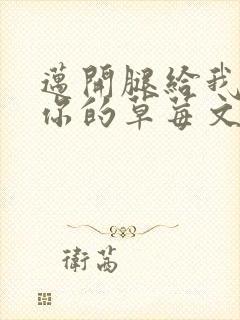 邁開腿給我
你的草莓文
衛茜